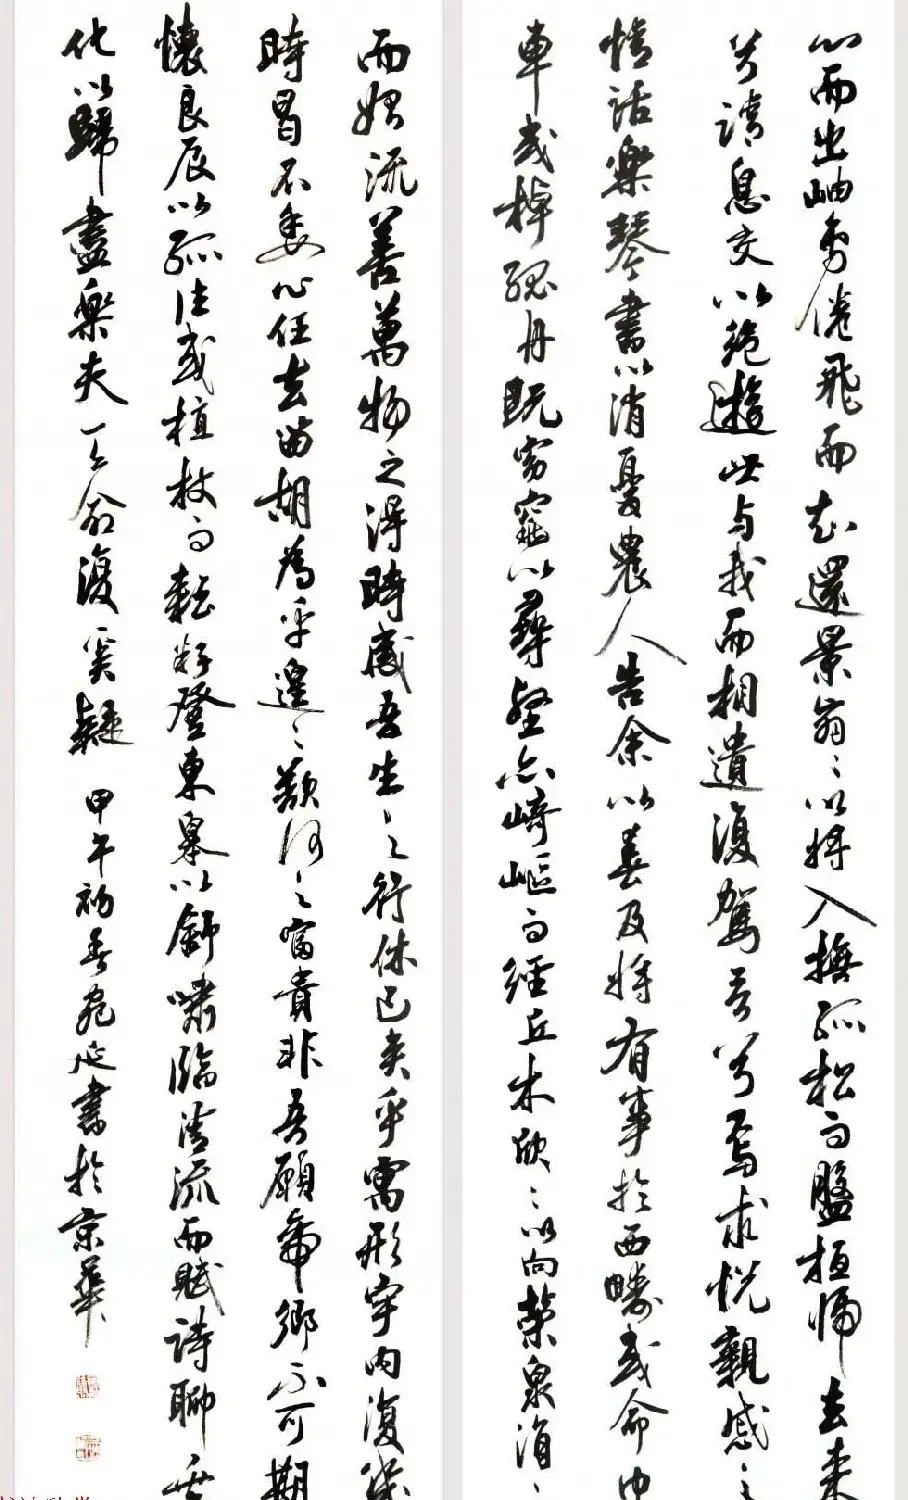 心而出岫鳥倦飛而知還景翳〻以將入撫孤松而盤桓歸去来
兮請息交以絕遊世与我而相遺復駕言兮焉求悅親戚之
情話樂琴書以消憂農人告余以春及將有事於西疇或命巾
車或棹孤舟既窈窕以尋壑亦崎嶇而經丘木欣〻以向榮泉涓〻
而始流善萬物之得時感吾生之行休已矣乎寓形宇内復幾
時曷不委心任去留胡為乎遑〻欲何之富貴非吾願帝鄉不可期
懷良辰以孤往或植杖而耘耔登東皋以舒嘯臨清流而賦詩聊乘
化以歸盡樂夫天命復奚疑 甲午初春 書於京華